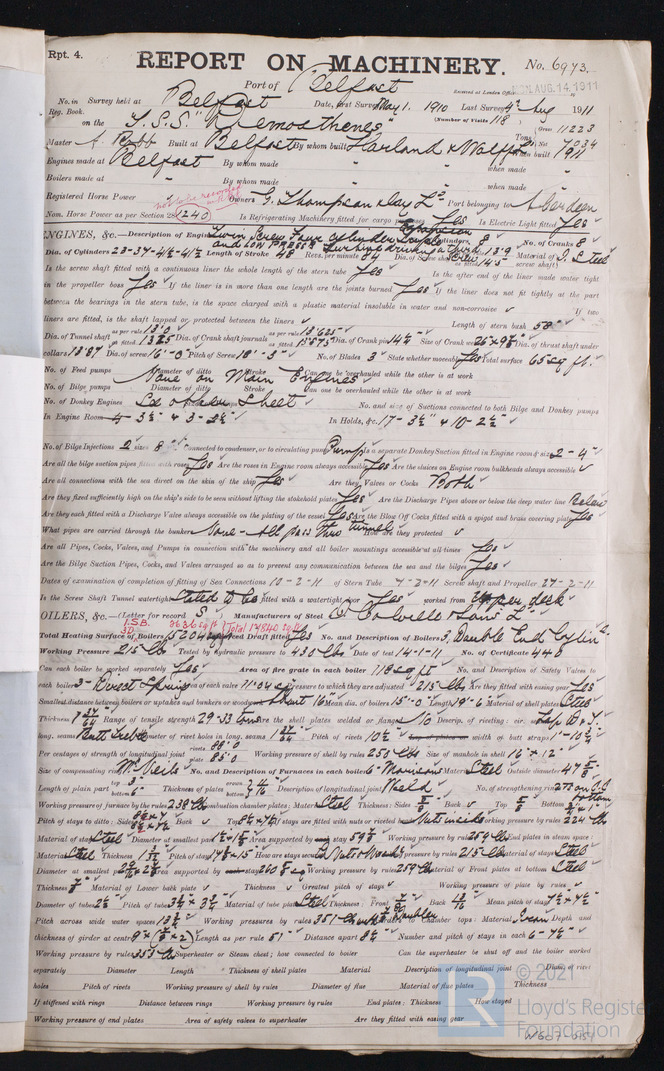 Rpt. 4.
REPORT ON MACHINERY.
No. 6973.
Port of Belfast
Received at London Office MON. AUG. 14. 1911
No. in Survey held at Belfast Date, first Survey May 1. 1910 Last Survey 4th Aug 1911
Reg. Book. (Number of Visits 118)
on the T.S.S. "Demosthenes" Tons Gross 11223 Net 7034
Master A. Robb Built at Belfast By whom built Harland & Wolff Ld When built 1911
Engines made at Belfast By whom made " when made "
Boilers made at " By whom made " when made "
Registered Horse Power Owners G. Thompson & Co Ld Port belonging to Aberdeen
Nom. Horse Power as per Section 28 1240 Is Refrigerating Machinery fitted for cargo purposes Yes Is Electric Light fitted Yes
ENGINES, &c.—Description of Engines Twin Screw Four Cylinder Triple Expansion and Low Pressure Turbine driving a third Screw No. of Cylinders 8 No. of Cranks 8
Dia. of Cylinders 23-37-41½-41½ Length of Stroke 48 Revs. per minute 84 Dia. of Screw shaft as per rule 13.9 as fitted 14.5 Material of screw shaft I. Steel
Is the screw shaft fitted with a continuous liner the whole length of the stern tube Yes Is the after end of the liner made water tight
in the propeller boss Yes If the liner is in more than one length are the joints burned Yes If the liner does not fit tightly at the part
between the bearings in the stern tube, is the space charged with a plastic material insoluble in water and non-corrosive ✓ If two
liners are fitted, is the shaft lapped or protected between the liners ✓ Length of stern bush 58"
Dia. of Tunnel shaft as per rule 13.0 as fitted 13.25 Dia. of Crank shaft journals as per rule 13.625" as fitted 13.875 Dia. of Crank pin 14½ Size of Crank webs 26"x9⅜" Dia. of thrust shaft under
collars 13.87 Dia. of screw 16'-0" Pitch of Screw 18'-3" No. of Blades 3 State whether moveable Yes Total surface 65 sq ft.
No. of Feed pumps Diameter of ditto Stroke Can one be overhauled while the other is at work
None on Main Engines
No. of Bilge pumps Diameter of ditto Stroke Can one be overhauled while the other is at work
No. of Donkey Engines See other sheet No. and size of Suctions connected to both Bilge and Donkey pumps
In Engine Room 4-3½" & 3-2½" In Holds, &c. 17-3½" & 10-2½"
No. of Bilge Injections 2 sizes 8" Connected to condenser, or to circulating pump Pump Is a separate Donkey Suction fitted in Engine room & size 2-4"
Are all the bilge suction pipes fitted with roses Yes Are the roses in Engine room always accessible Yes Are the sluices on Engine room bulkheads always accessible ✓
Are all connections with the sea direct on the skin of the ship Yes Are they Valves or Cocks Both
Are they fixed sufficiently high on the ship's side to be seen without lifting the stokehold plates Yes Are the Discharge Pipes above or below the deep water line Below
Are they each fitted with a Discharge Valve always accessible on the plating of the vessel Yes Are the Blow Off Cocks fitted with a spigot and brass covering plate Yes
What pipes are carried through the bunkers None - All pass thro tunnel How are they protected ✓
Are all Pipes, Cocks, Valves, and Pumps in connection with the machinery and all boiler mountings accessible at all times Yes
Are the Bilge Suction Pipes, Cocks, and Valves arranged so as to prevent any communication between the sea and the bilges Yes
Dates of examination of completion of fitting of Sea Connections 10-2-11 of Stern Tube 7-2-11 Screw shaft and Propeller 27-2-11
Is the Screw Shaft Tunnel watertight Stated to be fitted with a watertight door Yes worked from Upper deck
BOILERS, &c.— (Letter for record S) Manufacturers of Steel D. Colville & Sons Ld
1.S.B. 3D 3636 sq ft Total 18840 sq ft
Total Heating Surface of Boilers 15204 sq ft Is Forced Draft fitted Yes No. and Description of Boilers 3, Double End Cylin.
Working Pressure 215 lbs Tested by hydraulic pressure to 430 lbs Date of test 14-1-11 No. of Certificate 440
Can each boiler be worked separately Yes Area of fire grate in each boiler 118 sq ft No. and Description of Safety Valves to
each boiler 3-Direct Spring Area of each valve 11.04 sq Pressure to which they are adjusted 215 lbs Are they fitted with easing gear Yes
Smallest distance between boilers or uptakes and bunkers or woodwork About 16 Mean dia. of boilers 15'-0" Length 19'-6 Material of shell plates Steel
Thickness 1 37/64 Range of tensile strength 29-33 tons Are the shell plates welded or flanged No Descrip. of riveting: cir. seams Lap
long. seams Butt Treble Diameter of rivet holes in long. seams 1 37/64 Pitch of rivets 10½ Lap of plates or width of butt straps 1'-10½
Per centages of strength of longitudinal joint rivets 88.0 plate 85.0 Working pressure of shell by rules 250 lbs Size of manhole in shell 16"x12"
Size of compensating ring McNeils No. and Description of Furnaces in each boiler 6 Morison Material Steel Outside diameter 47⅝
Length of plain part Thickness of plates Description of longitudinal joint Weld No. of strengthening rings
Working pressure of furnace by the rules 238 lbs Combustion chamber plates: Material Steel Thickness: Sides Back ✓ Top Bottom
Pitch of stays to ditto: Sides Back ✓ Top If stays are fitted with nuts or riveted heads Nuts inside Working pressure by rules 224 lbs
Material of stays Steel Diameter at smallest part Area supported by each stay Working pressure by rules 259 lbs End plates in steam space:
Material Steel Thickness Pitch of stays How are stays secured D. Nuts & Washers Working pressure by rules 215 lbs Material of stays Steel
Diameter at smallest part Area supported by each stay Working pressure by rules 259 lbs Material of Front plates at bottom Steel
Thickness Material of Lower back plate ✓ Thickness ✓ Greatest pitch of stays ✓ Working pressure of plate by rules ✓
Diameter of tubes 2½ Pitch of tubes 3¾ x 3¾ Material of tube plates Steel Thickness: Front Back Mean pitch of stays 7½ x 7½
Pitch across wide water spaces 13¾ Working pressures by rules 351 lbs Girders to Chamber tops: Material Iron Depth and
thickness of girder at centre Length as per rule 51" Distance apart 8½" Number and pitch of stays in each 6-7½"
Working pressure by rules 353 lbs Superheater or Steam chest; how connected to boiler Can the superheater be shut off and the boiler worked
separately Diameter Length Thickness of shell plates Material Description of longitudinal joint Diam. of rivet
holes Pitch of rivets Working pressure of shell by rules Diameter of flue Material of flue plates Thickness
If stiffened with rings Distance between rings Working pressure by rules End plates: Thickness How stayed
Working pressure of end plates Area of safety valves to superheater Are they fitted with easing gear
© 2021
LR
Lloyd's Register
Foundation
W607-0157